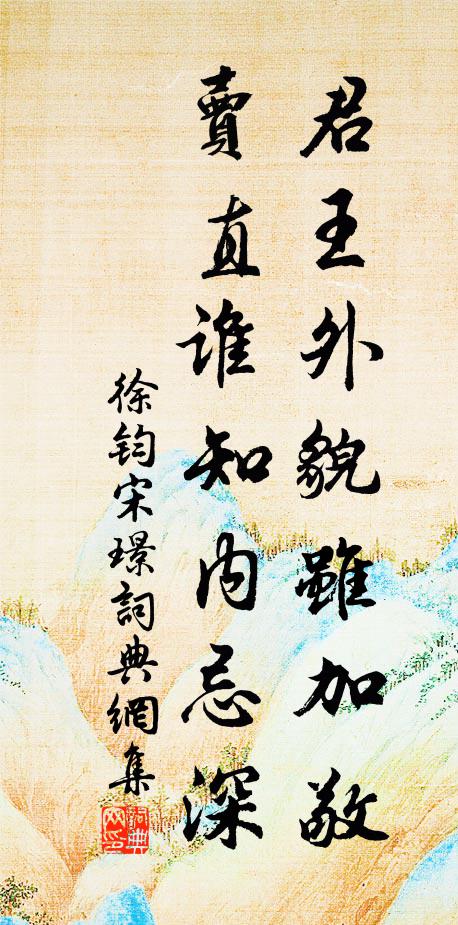 君王外貌雖加敬
賣直谁知内忌深
徐鈞宋璟詞典網集